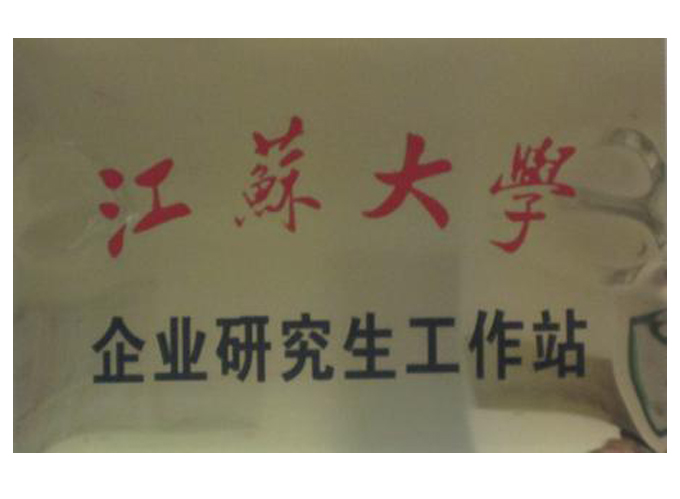 江蘇大學
企业研究生工作站